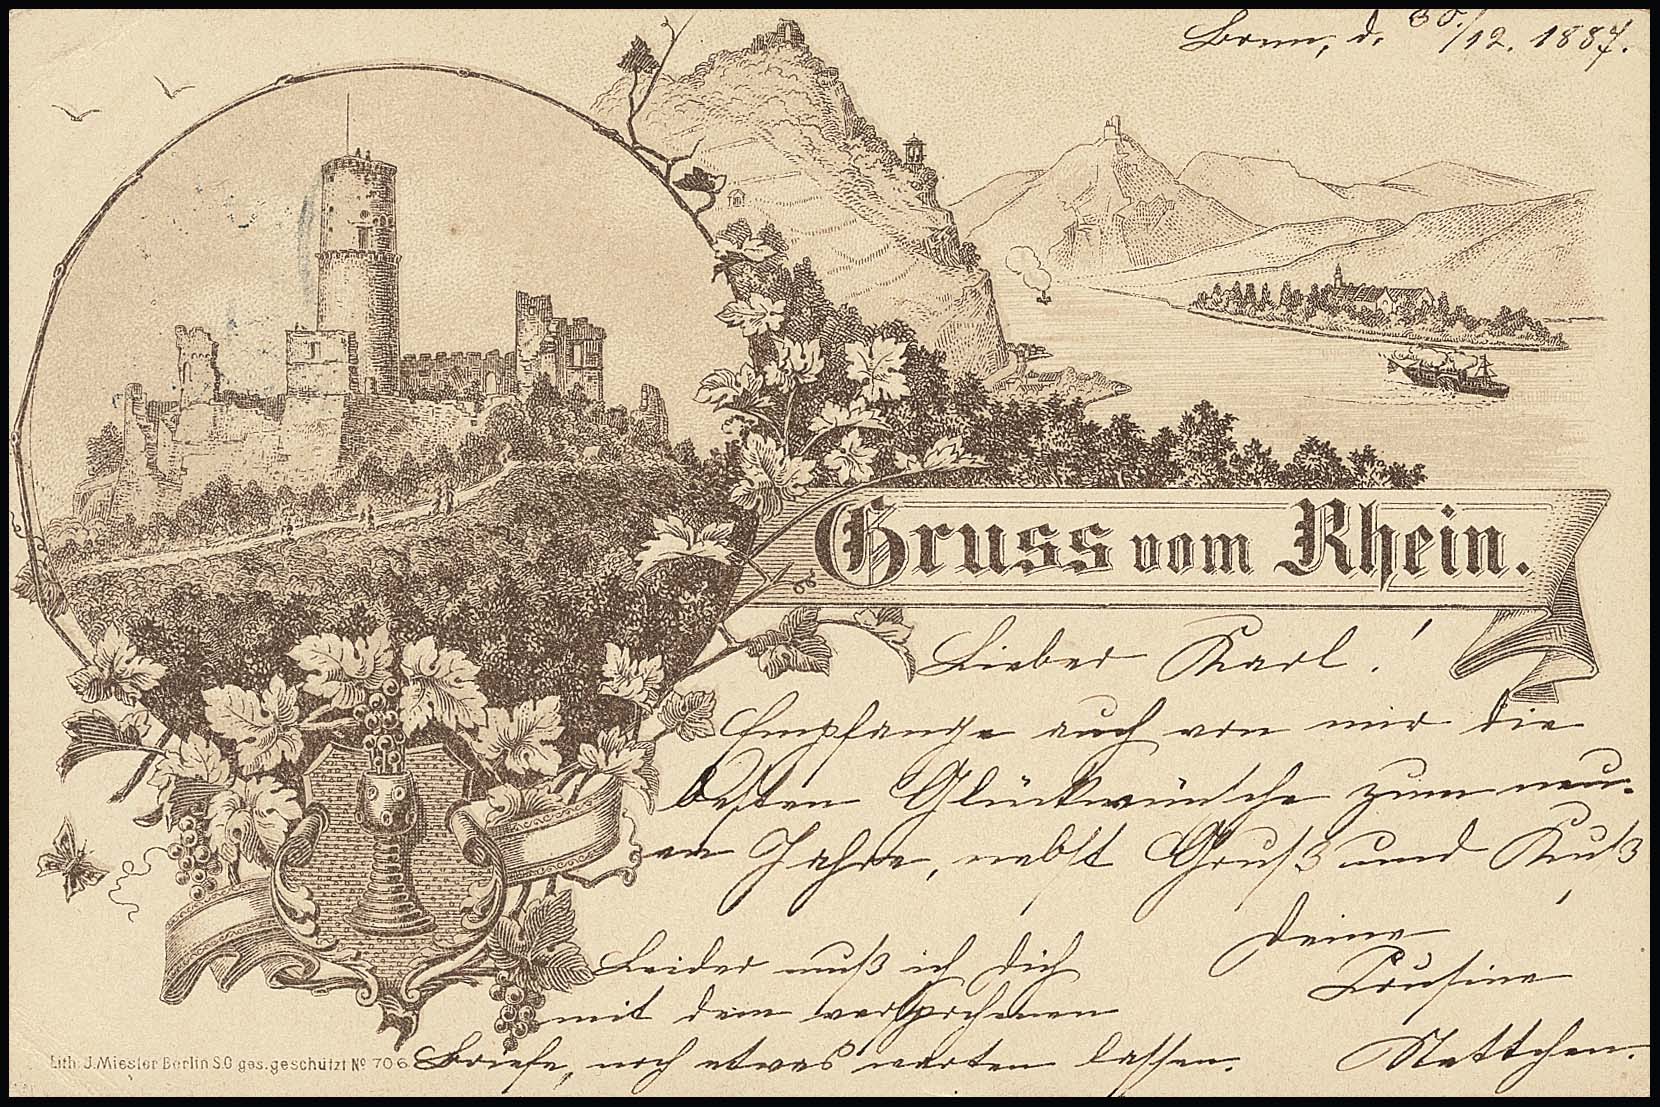 Bonn, d. 30./12. 1887.
Gruss vom Rhein.
Lieber Karl!
Empfange auch von mir die
besten Glückwünsche zum neu-
en Jahre, nebst Gruß und Kuß
Deine
Cousine
Nettchen.
Leider muß ich Dich
mit dem versprochenen
Briefe, noch etwas warten lassen.
Lith. J. Miesler Berlin S.O ges. geschützt No 706